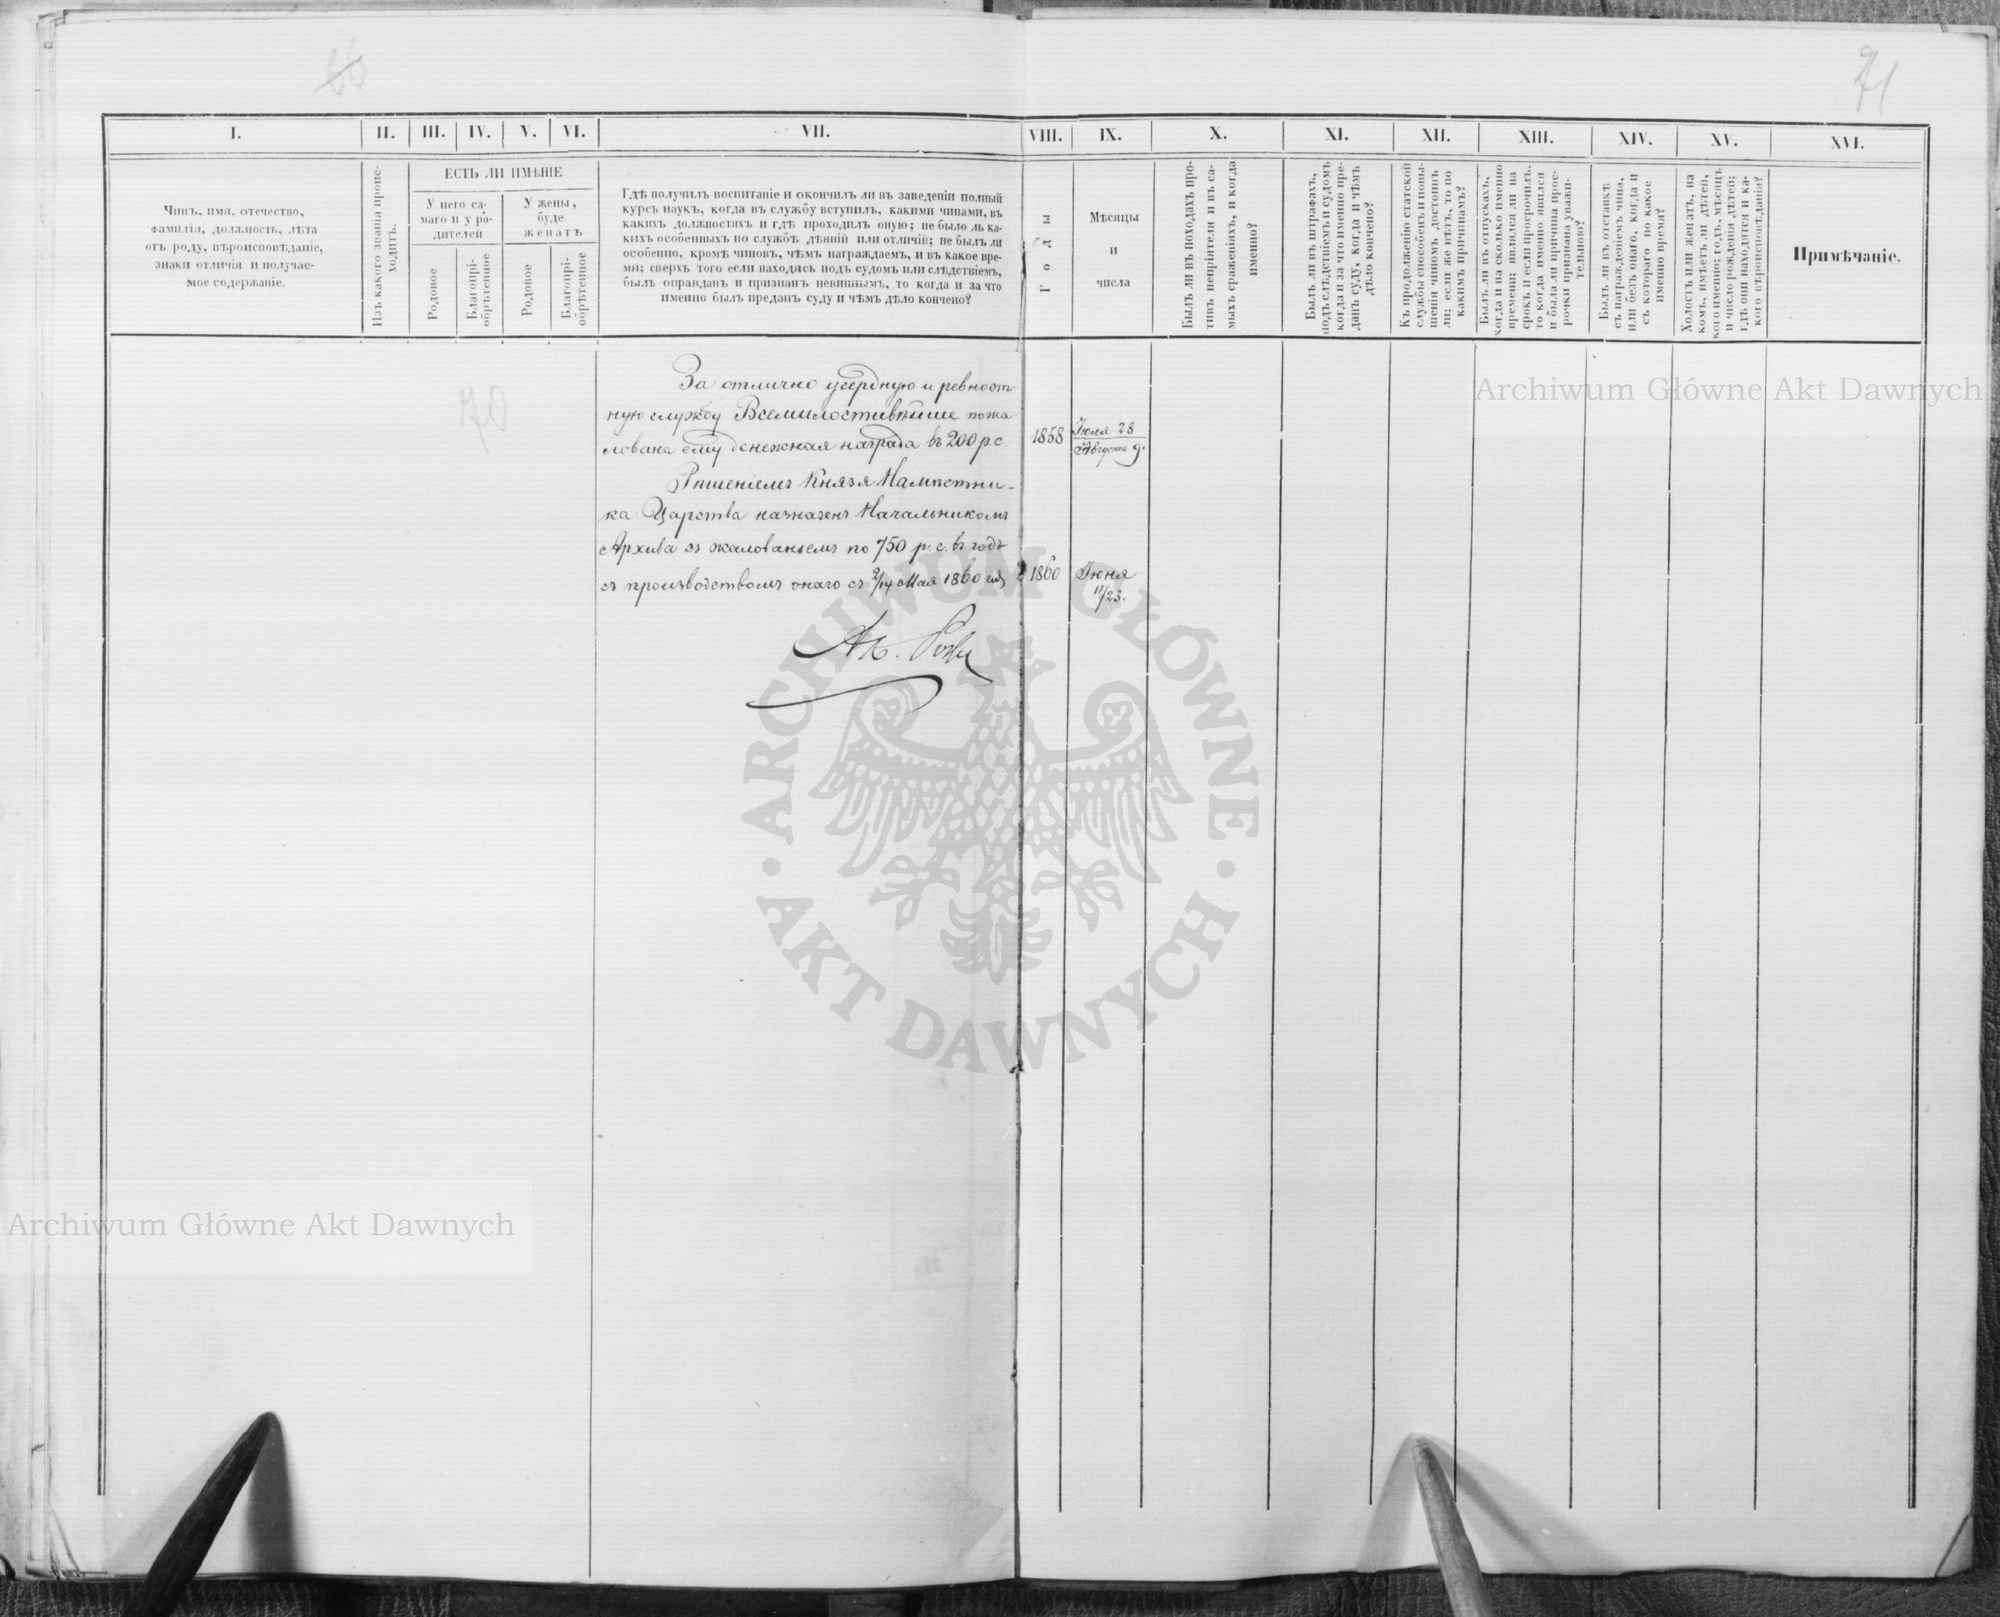 66
71
I.
II.
III.
IV.
V.
VI.
VII.
VIII.
IX.
X.
XI.
XII.
XIII.
XIV.
XV.
XVI.
Чинъ, имя, отечество,
фамилія, должность, лѣта
отъ роду, вѣроисповѣданіе,
знаки отличія и получае-
мое содержаніе.
Изъ какого званія проис-
ходитъ.
ЕСТЬ ЛИ ИМѢНІЕ
У него са-
маго и у ро-
дителей
У жены,
буде
женатъ
Родовое
Благопрі-
обрѣтенное
Родовое
Благопрі-
обрѣтенное
Гдѣ получилъ воспитаніе и окончилъ ли въ заведеніи полный
курсъ наукъ, когда въ службу вступилъ, какими чинами, въ
какихъ должностяхъ и гдѣ проходилъ оную; не было ль ка-
кихъ особенныхъ по службѣ дѣяній или отличій; не былъ ли
особенно, кромѣ чиновъ, чѣмъ награждаемъ, и въ какое вре-
мя; сверхъ того если находясь подъ судомъ или слѣдствіемъ,
былъ оправданъ и признанъ невиннымъ, то когда и за что
именно былъ преданъ суду и чѣмъ дѣло кончено?
Годы
Мѣсяцы
и
числа
Былъ ли въ походахъ про-
тивъ непріятеля и въ са-
мыхъ сраженіяхъ, и когда
именно?
Былъ ли въ штрафахъ,
подъ слѣдствіемъ и судомъ
когда и за что именно пре-
данъ суду, когда и чѣмъ
дѣло кончено?
Къ продолженію статской
службы способенъ и повы-
шенія чиномъ достоинъ
ли; если же нѣтъ, то по
какимъ причинамъ?
Былъ ли въ отпускахъ,
когда и на сколько именно
времени; являлся ли на
срокъ и если просрочилъ,
то когда именно явился
и была ли причина прос-
рочки признана уважи-
тельною?
Былъ ли въ отставкѣ
съ награжденіемъ чина,
или безъ онаго, когда и
съ котораго по какое
именно время?
Холостъ или женатъ, на
комъ, имѣетъ ли дѣтей,
кого именно; годъ, мѣсяцъ
и число рожденія дѣтей;
гдѣ они находятся и ка-
кого вѣроисповѣданія?
Примѣчаніе.
70
За отлично усердную и ревност-
ную службу Всемилостивѣйше пожа-
лована ему денежная награда въ 200 р. с.
1858
Іюля 28
Августа 9.
Рѣшеніемъ Князя Намѣстни-
ка Царства назначенъ Начальникомъ
Архива съ жалованьемъ по 750 р. с. въ годъ
съ производствомъ онаго съ 2/14 Мая 1860 года
1860
Іюня
11/23.
Archiwum Główne Akt Dawnych
ARCHIWUM GŁÓWNE
AKT DAWNYCH
Archiwum Główne Akt Dawnych